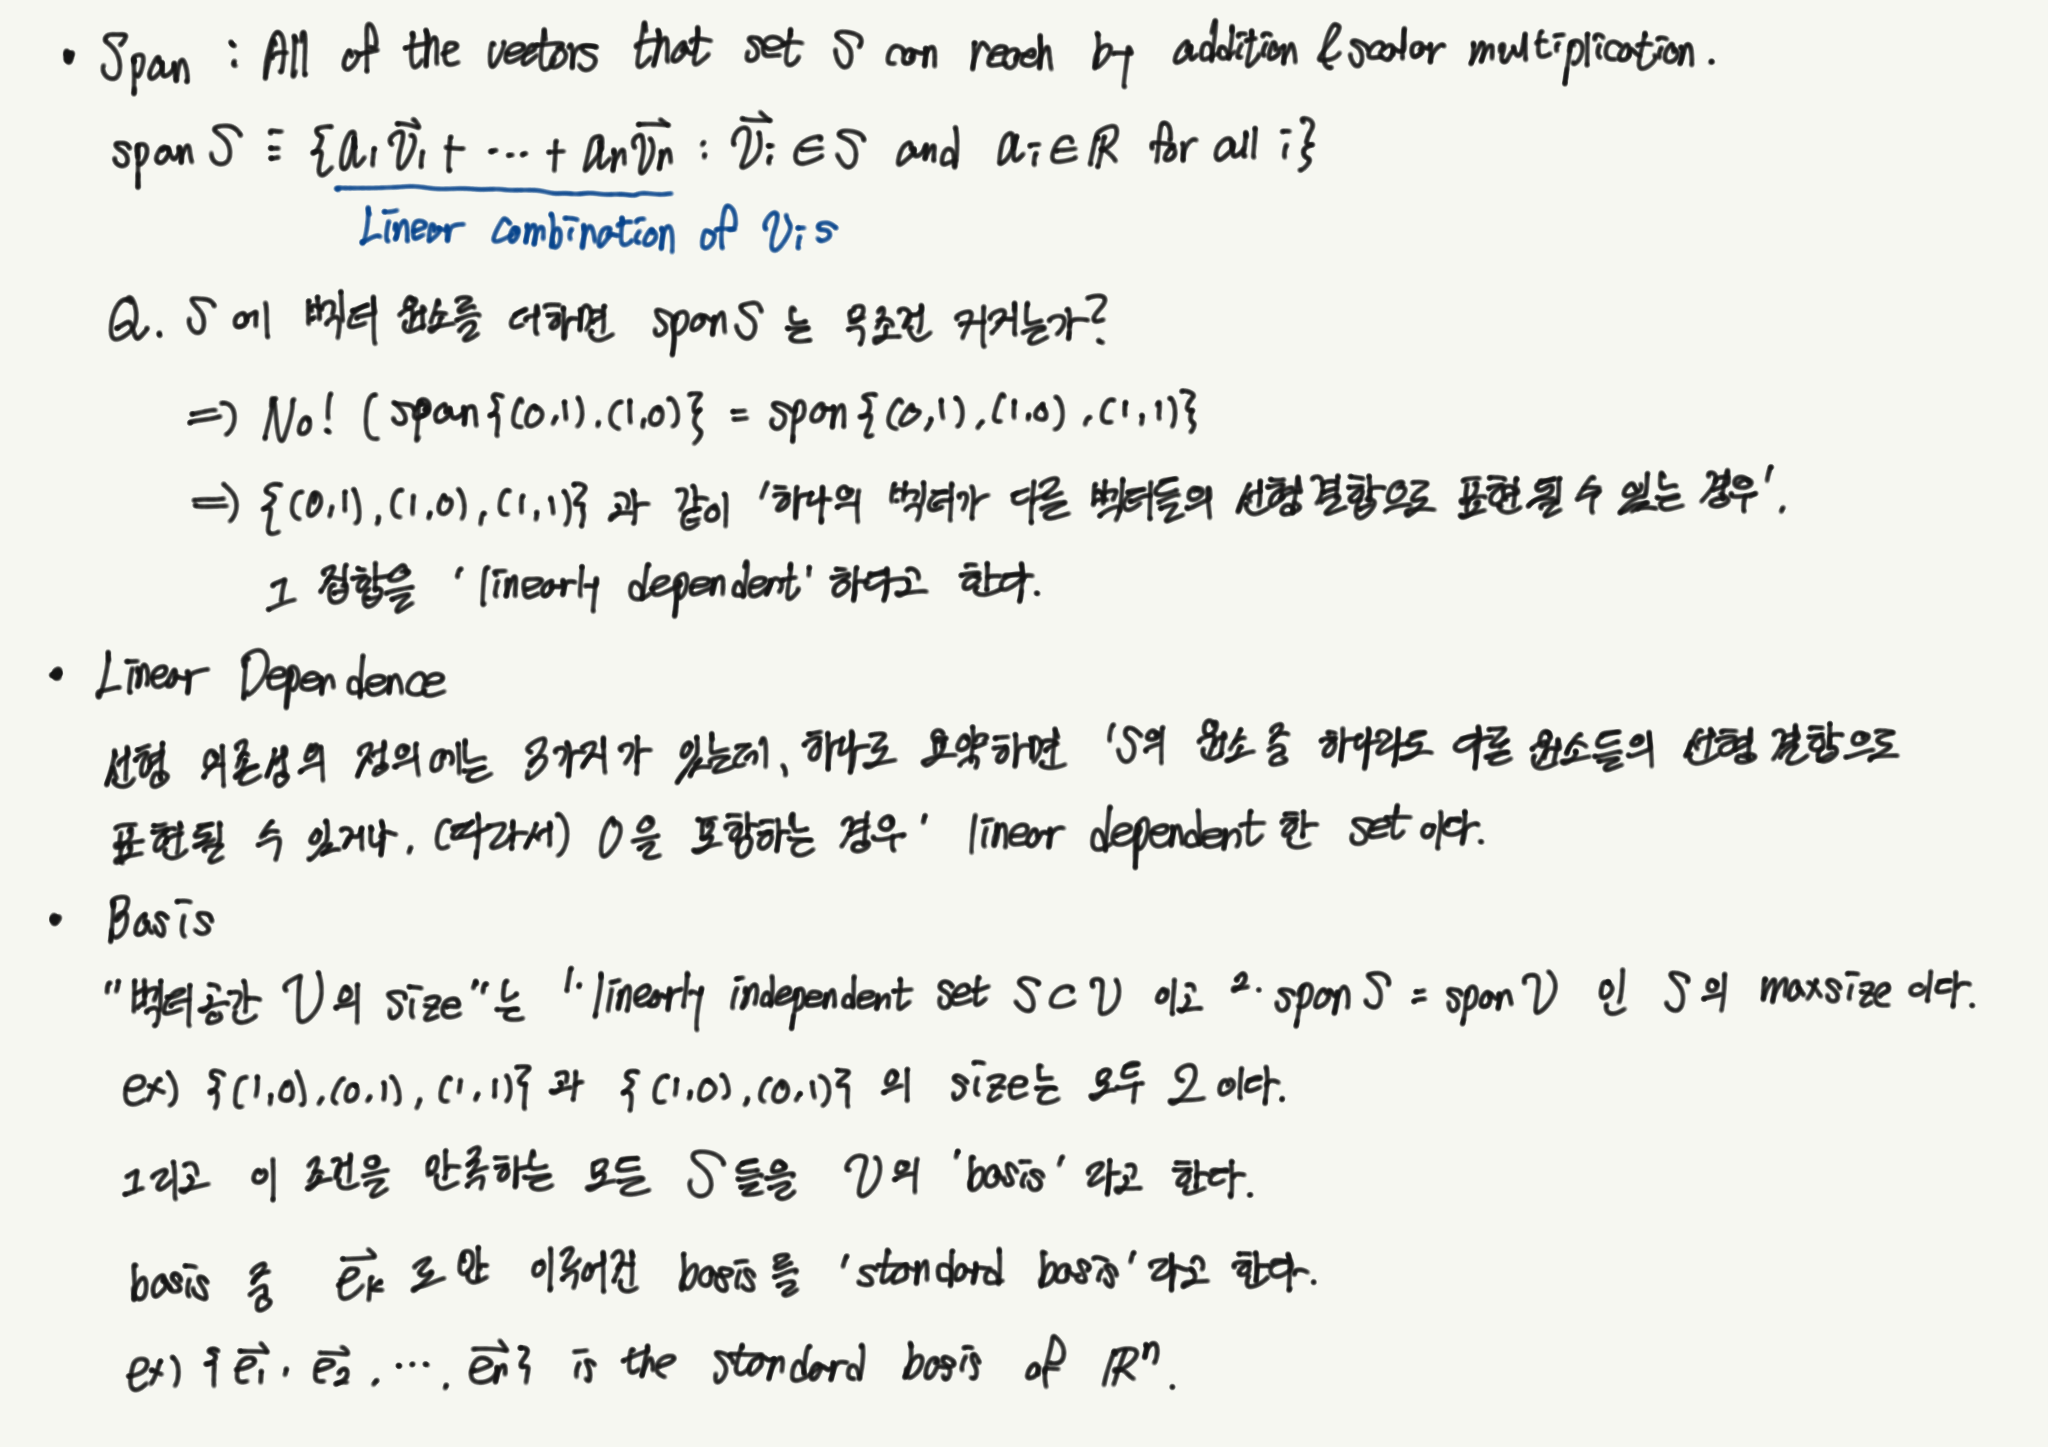 • Span : All of the vectors that set S can reach by addition & scalar multiplication.
span S ≡ {a₁v⃗₁ + ⋯ + aₙv⃗ₙ : v⃗ᵢ ∈ S and aᵢ ∈ ℝ for all i}
Linear combination of vᵢs
Q. S에 벡터 원소를 더하면 span S는 무조건 커지는가?
=> No! (span{(0,1), (1,0)} = span{(0,1), (1,0), (1,1)}
=> {(0,1), (1,0), (1,1)}과 같이 '하나의 벡터가 다른 벡터들의 선형결합으로 표현될 수 있는 경우',
그 집합을 'linearly dependent'하다고 한다.
• Linear Dependence
선형 의존성의 정의에는 3가지가 있는데, 하나로 요약하면 'S의 원소 중 하나라도 다른 원소들의 선형 결합으로
표현될 수 있거나, (따라서) 0을 포함하는 경우' linear dependent한 set이다.
• Basis
"벡터공간 V의 size"는 1. linearly independent set S⊂V 이고 2. span S = span V 인 S의 maxsize이다.
ex) {(1,0), (0,1), (1,1)}과 {(1,0), (0,1)}의 size는 모두 2이다.
그리고 이 조건을 만족하는 모든 S들을 V의 'basis'라고 한다.
basis 중 e⃗ₖ로만 이루어진 basis를 'standard basis'라고 한다.
ex) {e⃗₁, e⃗₂, ⋯, e⃗ₙ} is the standard basis of ℝⁿ.